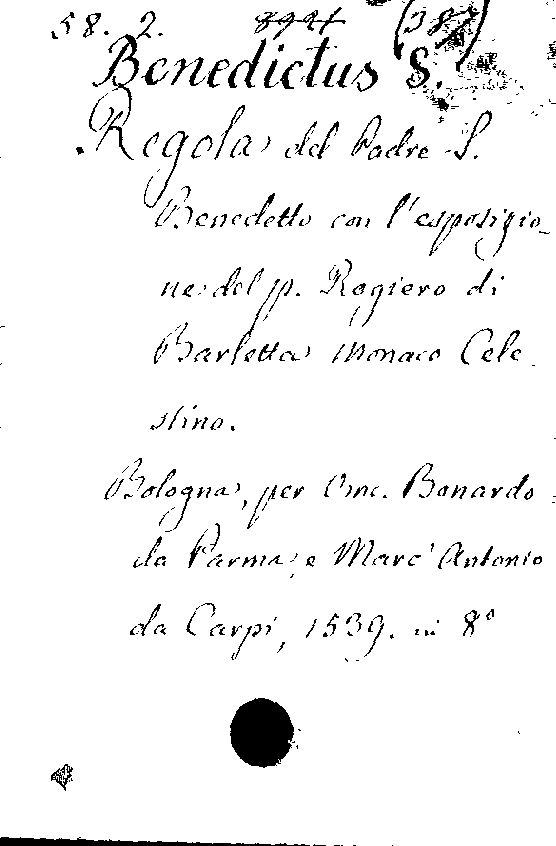 58. 2. 8921 (387)
Benedictus S.
Regola del Padre S.
Benedetto con l'esposizio_
ne del p. Rogiero di
Barletta Monaco Cele_
stino.
Bologna, per Vinc. Bonardo
da Parma, e Marc'Antonio
da Carpi, 1539. in 8º